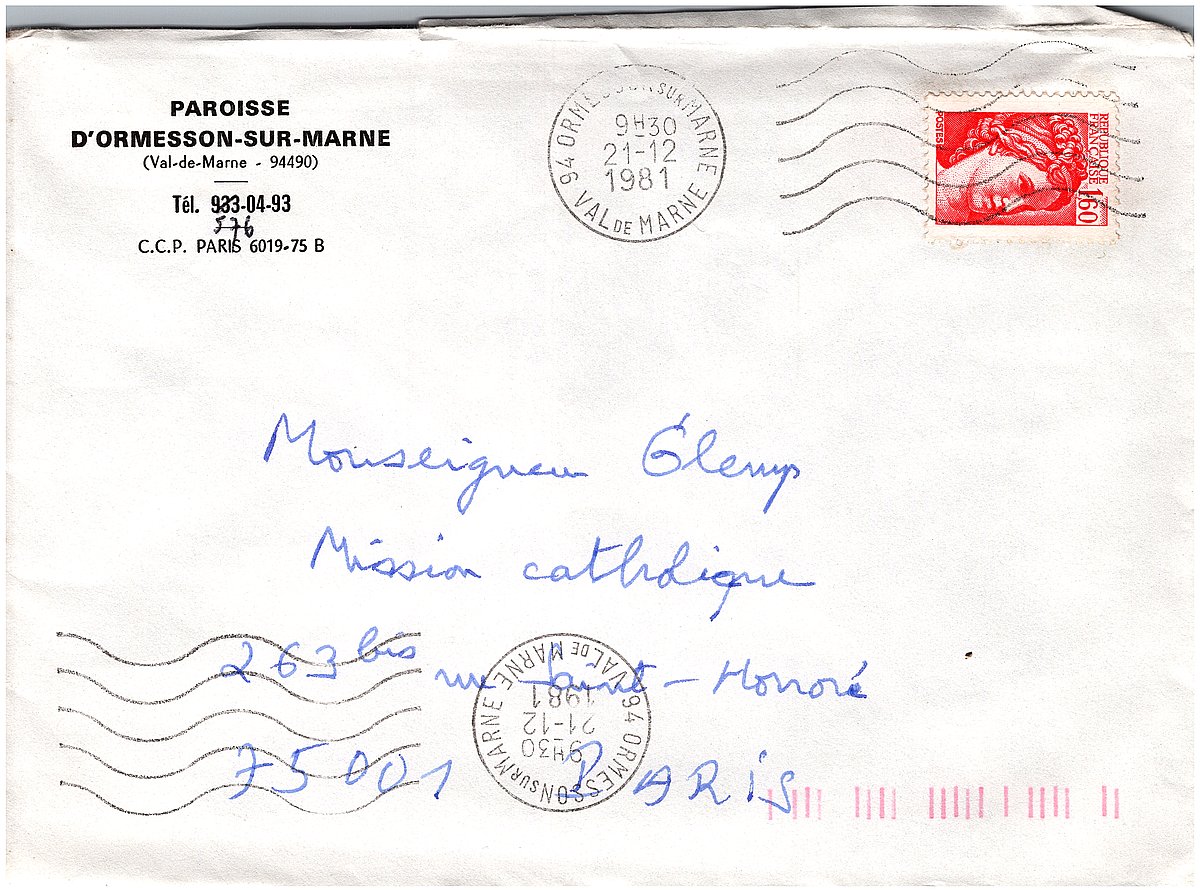 PAROISSE
D'ORMESSON-SUR-MARNE
(Val-de-Marne - 94490)
Tél. 933-04-93
576
C.C.P. PARIS 6019-75 B
94 ORMESSON SUR MARNE
9H30
21-12
1981
VAL DE MARNE
REPUBLIQUE
FRANCAISE 1,60
POSTES
Monseigneur Glemp
Mission catholique
263 bis rue Saint-Honoré
75001 PARIS
94 ORMESSON SUR MARNE
9H30
21-12
1981
VAL DE MARNE